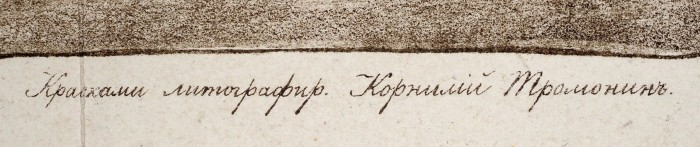 Красками литографир. Корнилій Тромонинъ.